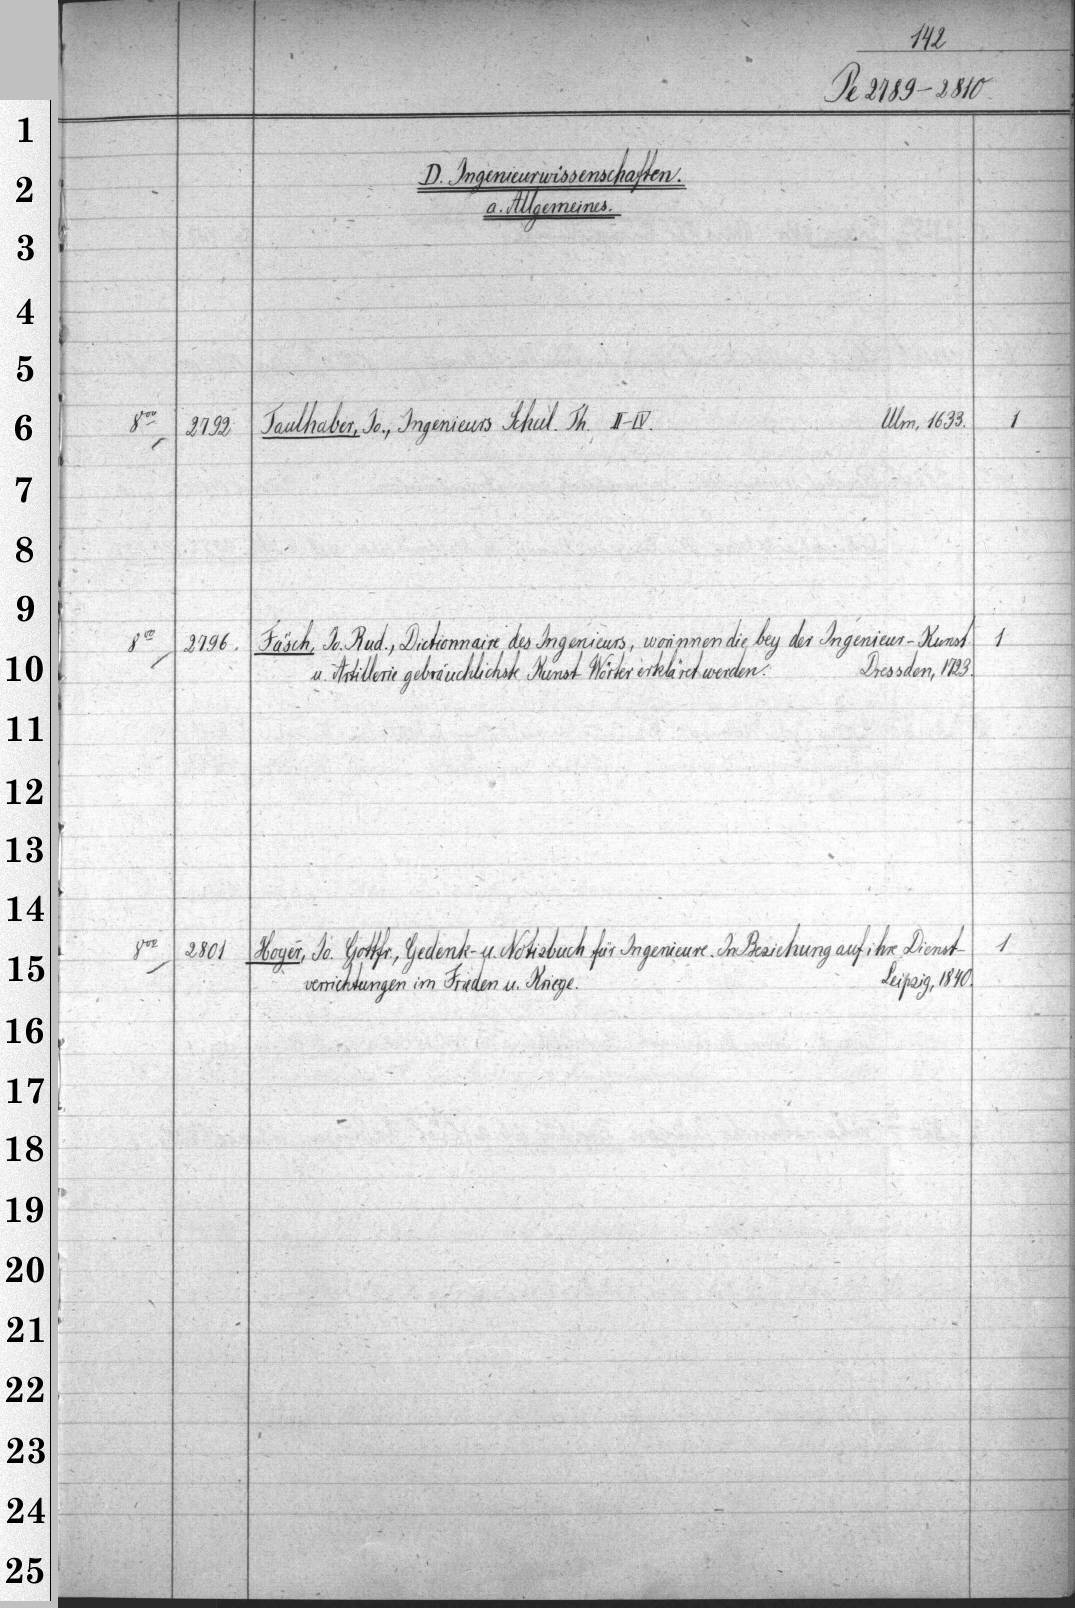 142
Pe 2789-2810
D. Ingenieurwissenschaften.
a. Allgemeines.
8vo 2792 Faulhaber, Jo., Ingenieurs Schul. Th. II-IV. Ulm, 1633. 1
8vo 2796. Fäsch, Jo. Rud., Dictionnaire des Ingenieurs, worinnen die bey der Ingenieur-Kunst 1
u. Artillerie gebräuchlichste Kunst Wörter erkläret werden. Dressden, 1723.
8vo 2801 Hoyer, Jo. Gottfr., Gedenk- u. Notizbuch für Ingenieure. In Beziehung auf ihre Dienst 1
verrichtungen im Frieden u. Kriege. Leipzig, 1840.
1
2
3
4
5
6
7
8
9
10
11
12
13
14
15
16
17
18
19
20
21
22
23
24
25